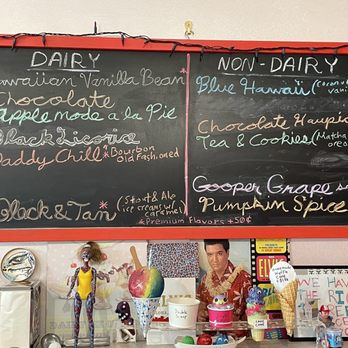 DAIRY
Hawaiian Vanilla Bean*
Chocolate
Apple mode a la Pie
Black Licorice
Daddy Chill *Bourbon
Old Fashioned
Black & Tan (Stout & Ale
ice creams w/
caramel)
*Premium Flavors +50¢
NON-DAIRY
Blue Hawaii
Chocolate Haupia
Tea & Cookies (Matcha
oreo
Gooper Grape
Pumpkin Spice
ELVIS
WE HAVE
THE RI